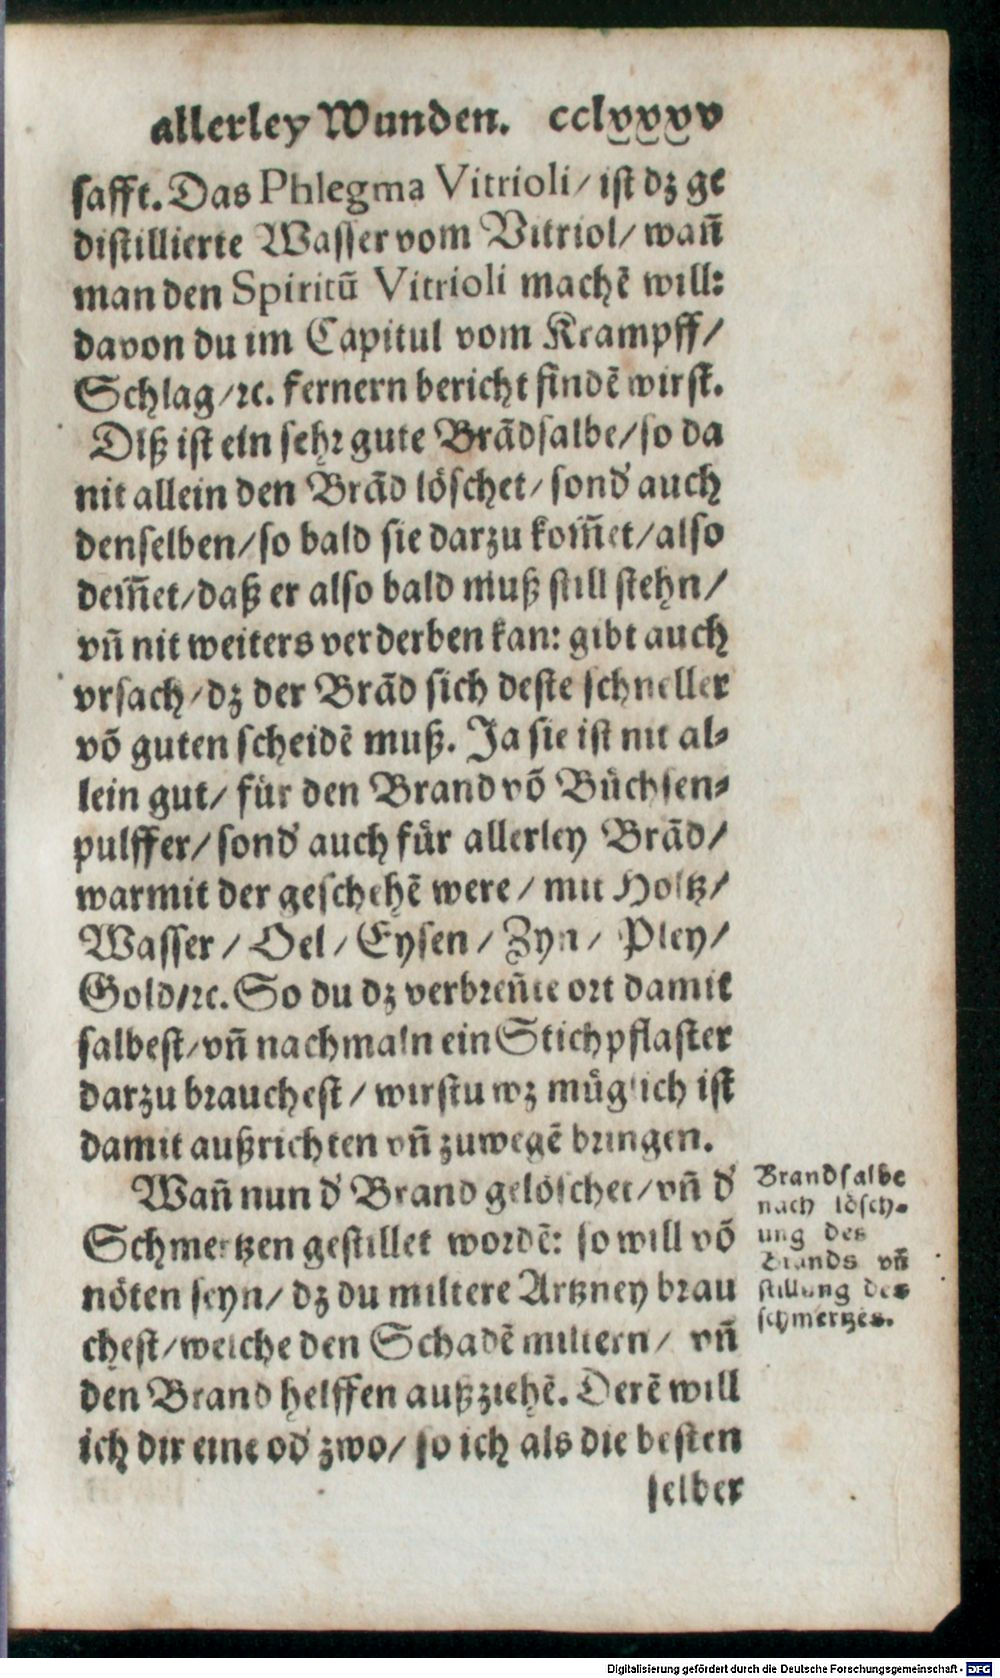 allerley Wunden. cclxxxv
safft. Das Phlegma Vitrioli/ ist dz ge
distillierte Wasser vom Vitriol/ wañ
man den Spiritũ Vitrioli machẽ will:
davon du im Capitul vom Krampff/
Schlag/ꝛc. fernern bericht findẽ wirst.
Diß ist ein sehr gute Brãdsalbe/so da
nit allein den Brãd löschet/ sond' auch
denselben/so bald sie darzu kom̃et/also
dem̃et/daß er also bald muß still stehn/
vñ nit weiters verderben kan: gibt auch
vrsach/dz der Brãd sich deste schneller
võ guten scheidẽ muß. Ja sie ist nit al⸗
lein gut/ für den Brand võ Büchsen⸗
pulffer/ sond' auch für allerley Brãd/
warmit der geschehẽ were/ mit Holtz/
Wasser/ Oel/ Eysen/ Zyn/ Pley/
Gold/ꝛc. So du dz verbreñte ort damit
salbest/vñ nachmaln ein Stichpflaster
darzu brauchest/ wirstu wz müglich ist
damit außrichten vñ zuwegẽ bringen.
Wañ nun d' Brand gelöschet/vñ d'
Schmertzen gestillet wordẽ: so will võ
nöten seyn/ dz du miltere Artzney brau
chest/welche den Schadẽ miltern/ vñ
den Brand helffen außziehẽ. Derẽ will
ich dir eine od' zwo/ so ich als die besten
selber
Brandsalbe
nach lösch⸗
ung des
Brands vñ
stillung des
schmertzes.
Digitalisierung gefördert durch die Deutsche Forschungsgemeinschaft - DFG